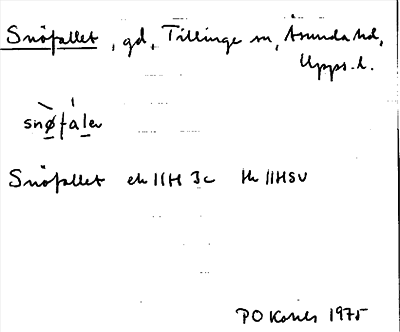 Snöfallet, gd, Tillinge sn, Åsunda hd,
Upps. l.
snø̀fálev
Snöfallet ek 11H 3c hk 11HSV
PO 1975